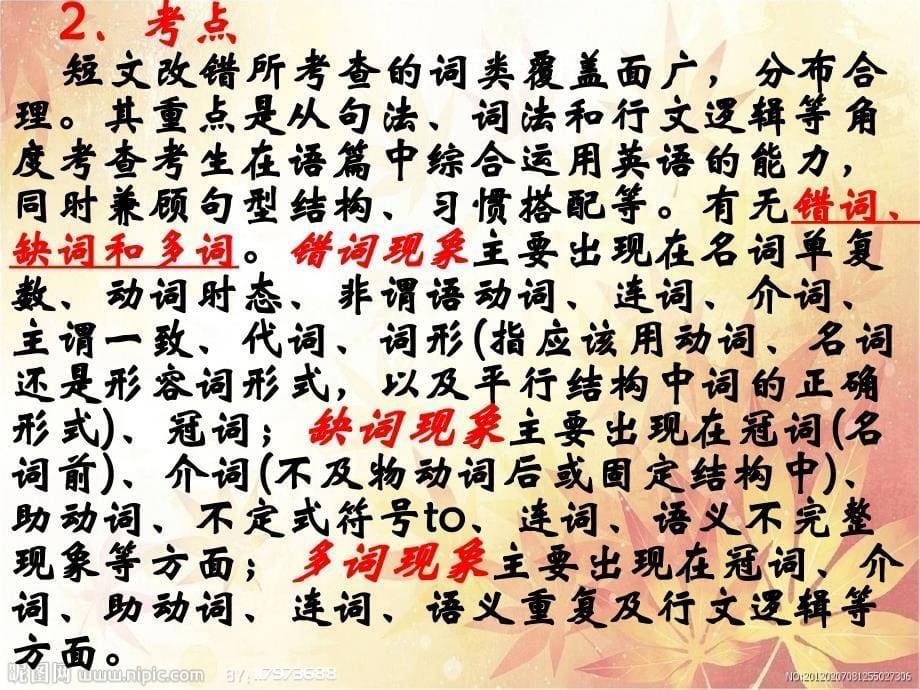 2、考点
短文改错所考查的词类覆盖面广，分布合
理。其重点是从句法、词法和行文逻辑等角
度考查考生在语篇中综合运用英语的能力，
同时兼顾句型结构、习惯搭配等。有无错词、
缺词和多词。错词现象主要出现在名词单复
数、动词时态、非谓语动词、连词、介词、
主谓一致、代词、词形(指应该用动词、名词
还是形容词形式，以及平行结构中词的正确
形式)、冠词；缺词现象主要出现在冠词(名
词前)、介词(不及物动词后或固定结构中)、
助动词、不定式符号to、连词、语义不完整
现象等方面；多词现象主要出现在冠词、介
词、助动词、连词、语义重复及行文逻辑等
方面。
昵图网 www.nipic.com
NO:20120207081255027306